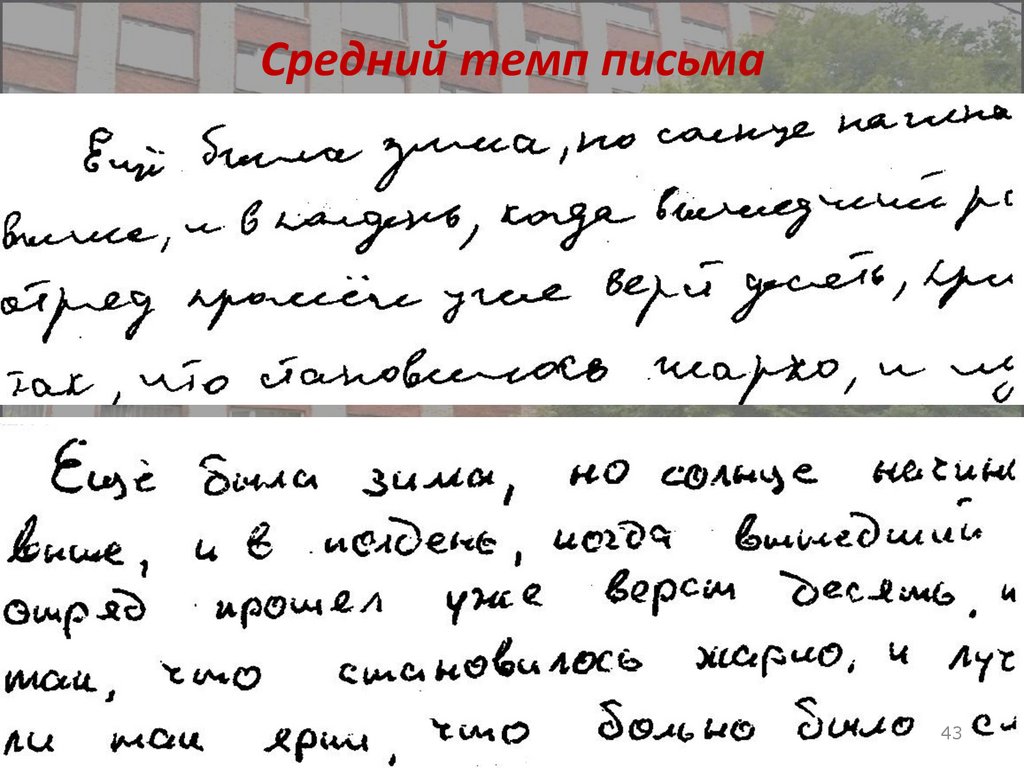 Средний темп письма
Ещё была зима, но солнце начина
выше, и в полдень, когда вышедший ра
отряд прошёл уже верст десять, при
так, что становилось жарко, и лу
Ещё была зима, но солнце начин
выше, и в полдень, когда вышедший
отряд прошел уже верст десять, и
так, что становилось жарко, и луч
ли так ярки, что больно было см
43